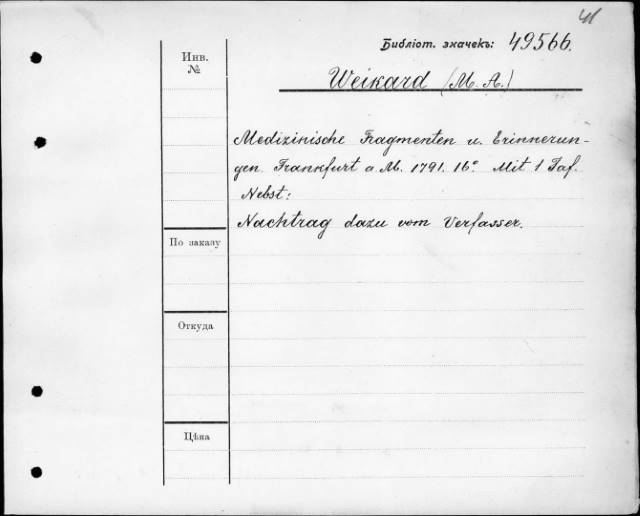 41
Библіот. значекъ: 49566.
Инв.
№
Weikard (M. A.)
Medizinische Fragmenten u. Erinnerun-
gen. Frankfurt a. M. 1791. 16°. Mit 1 Taf.
Nebst:
Nachtrag dazu vom Verfasser.
По заказу
Откуда
Цѣна